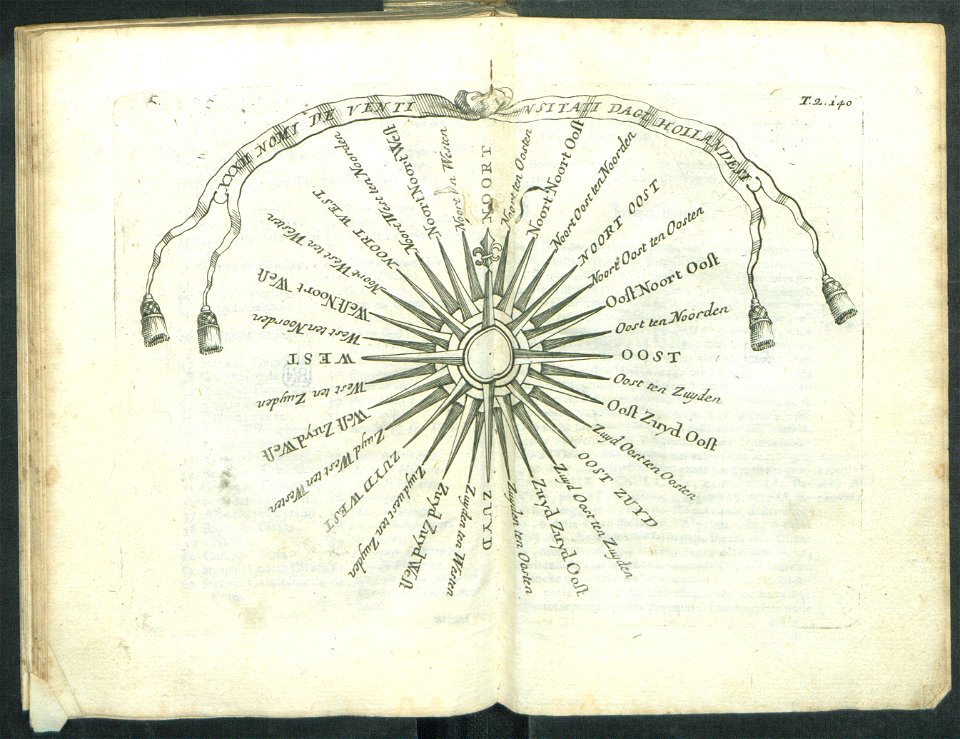 T. 2. 140
XXXII NOMI DE VENTI
VSITATI DAGL HOLLANDESI
NOORT
Noorten Oosten
Noort Noort Oost
Noort Oost ten Noorden
NOORT OOST
Noort Oost ten Oosten
Oost Noort Oost
Oost ten Noorden
OOST
Oost ten Zuyden
Oost Zuyd Oost
Zuyd Oost ten Oosten
OOST ZUYD
Zuyd Oost ten Zuyden
Zuyd Zuyd Oost
Zuyden ten Oosten
ZUYD
Zuyden ten Westen
Zuyd Zuyd West
Zuyduest ten Zuyden
ZUYD WEST
Zuyd West ten Westen
West Zuyd West
West ten Zuyden
WEST
West ten Noorden
West Noort West
Noort West ten Westen
NOORT WEST
Noort West ten Noorden
Noort Noort West
Westen